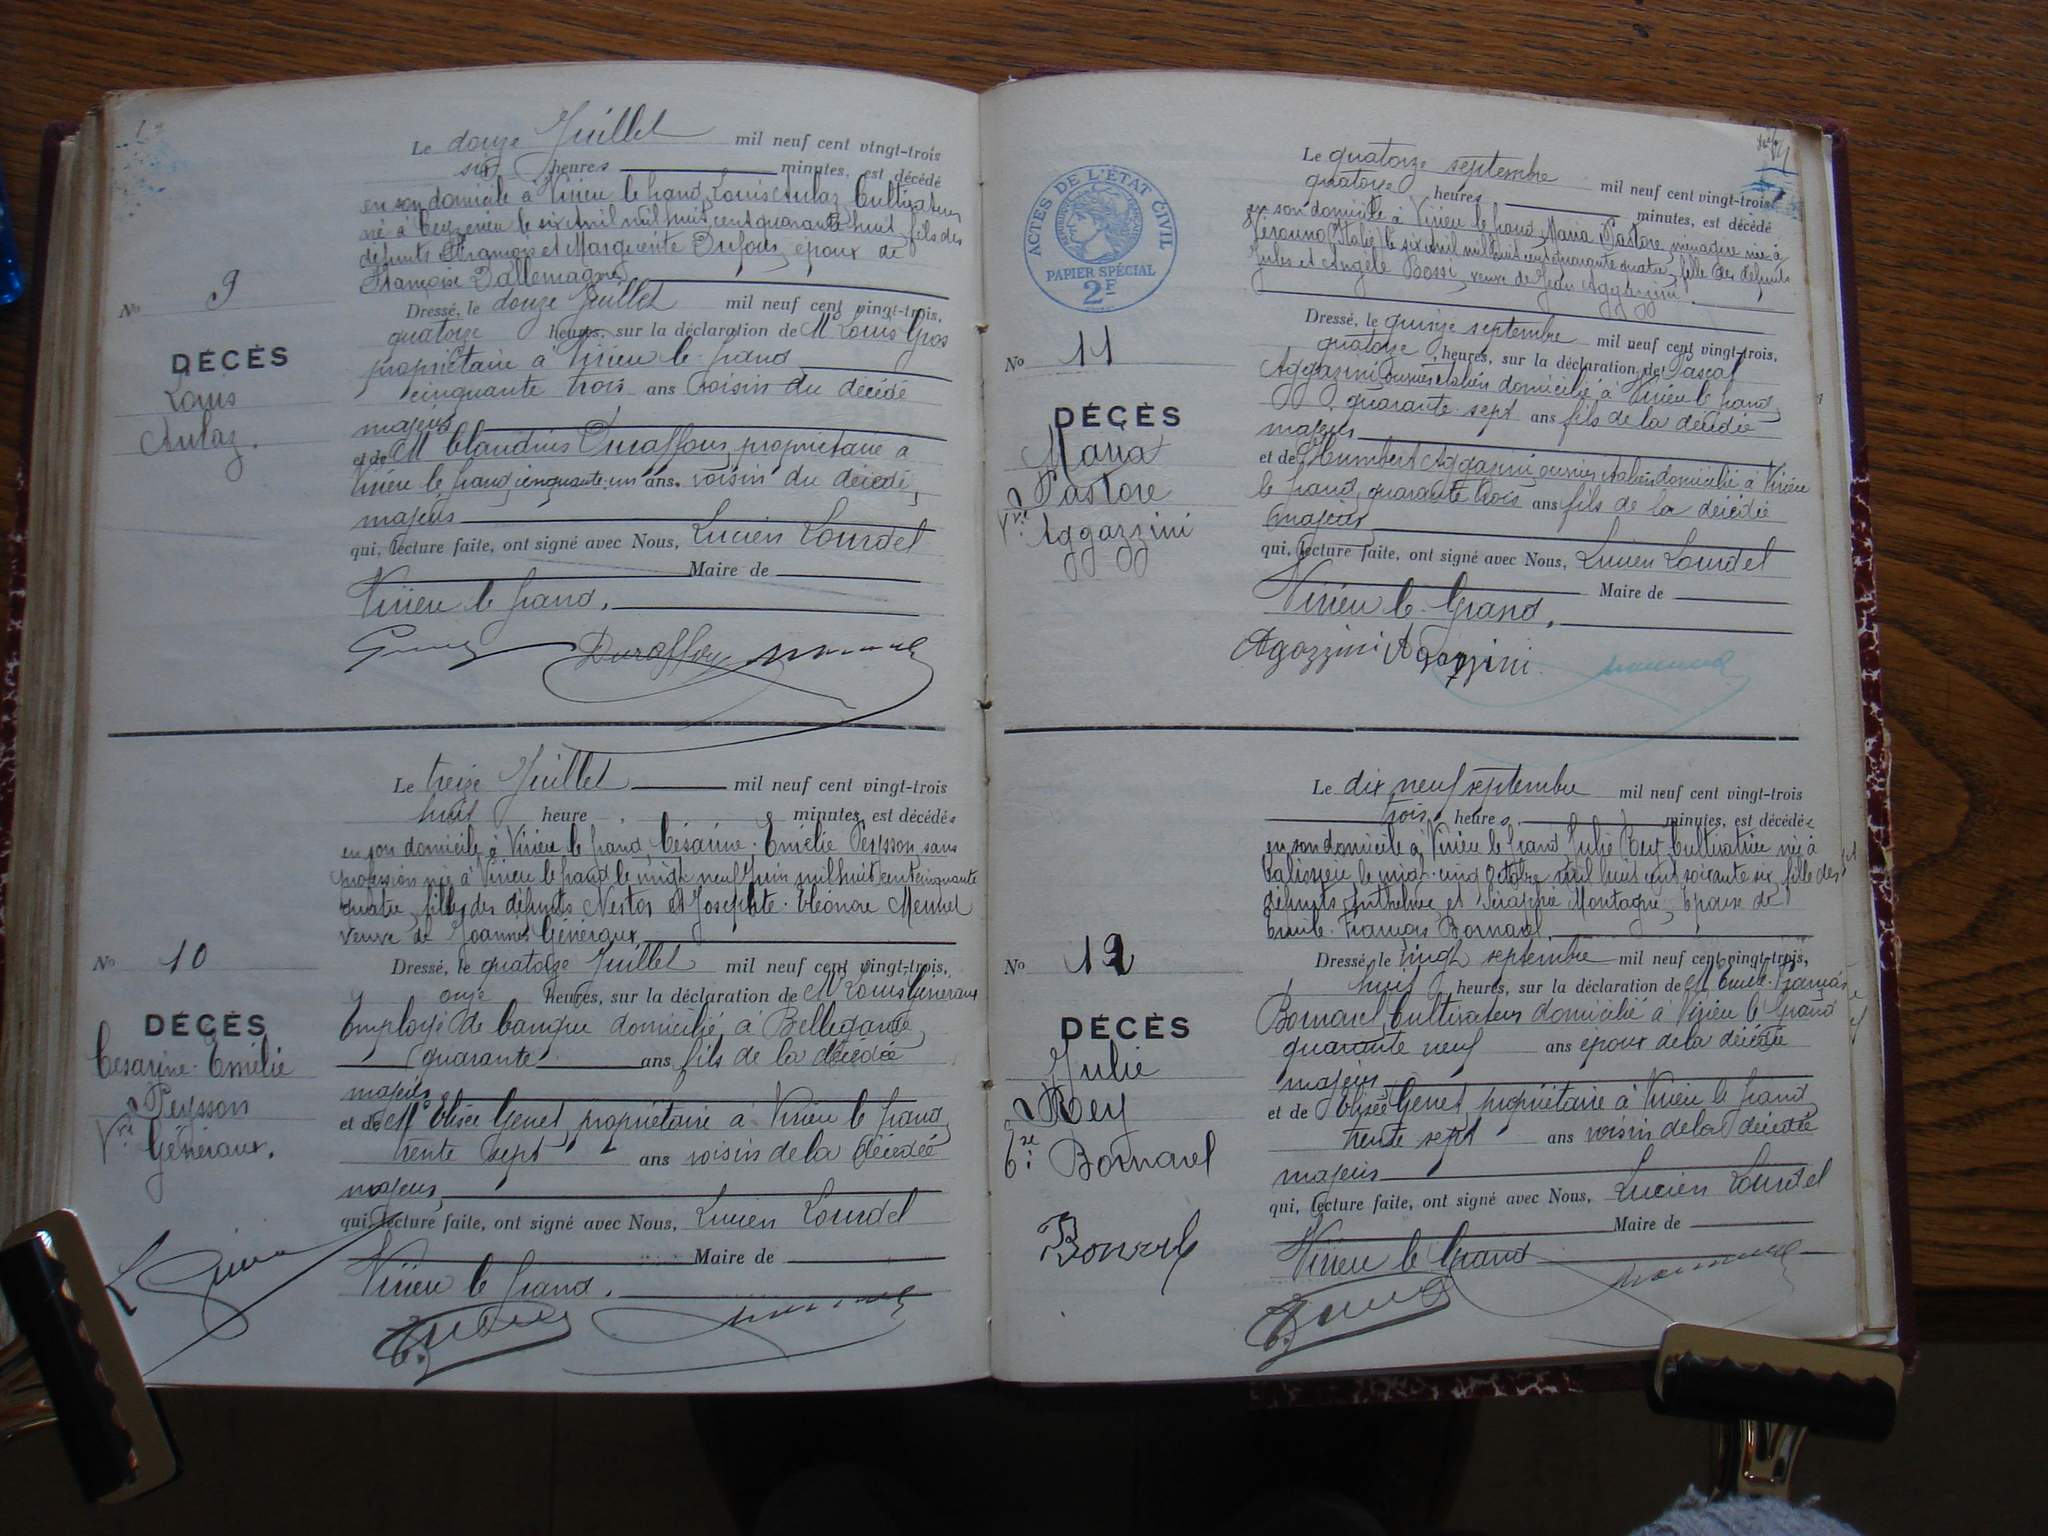 Le douze Juillet mil neuf cent vingt-trois
six heures minutes, est décédé
en son domicile à Virieu le grand, Louis Aulaz Cultivateur
né à Ceyzérieu le six avril mil huit cent quarante huit, fils des
défunts François et Marguerite Dufour, époux de
Françoise Dallemagne
No 9
DÉCÈS
Louis
Aulaz.
Dressé, le douze Juillet mil neuf cent vingt-trois,
quatorze heures, sur la déclaration de M Louis Gros
propriétaire à Virieu le grand
cinquante trois ans voisin du décédé
majeur
et de M Claudius Duraffour, propriétaire à
Virieu le grand, cinquante un ans, voisin du décédé,
majeur
qui, lecture faite, ont signé avec Nous, Lucien Lourdel
Maire de
Virieu le grand.
Duraffour
Le treize Juillet mil neuf cent vingt-trois
huit heure minutes, est décédée
en son domicile à Virieu le grand, Césarine-Emélie Peysson sans
profession née à Virieu le grand le vingt neuf Juin mil huit cent cinquante
quatre, fille des défunts Nestor et Josephte-Eléonore Mennet
veuve de Joannès Généraux
No 10
DÉCÈS
Césarine-Emélie
Peysson
Vve Généraux.
Dressé, le quatorze Juillet mil neuf cent vingt-trois,
onze heures, sur la déclaration de M Louis Généraux
Employé de banque domicilié à Bellegarde
quarante ans fils de la décédée
majeur
et de M Elisée Genet, propriétaire à Virieu le grand,
trente sept ans voisin de la décédée
majeur,
qui, lecture faite, ont signé avec Nous, Lucien Lourdel
Maire de
Virieu le grand.
ACTES DE L'ÉTAT CIVIL
PAPIER SPÉCIAL
2F
Le quatorze septembre mil neuf cent vingt-trois
quatorze heures minutes, est décédé
en son domicile à Virieu le grand, Maria Pastore, ménagère née à
(Italie) le six avril mil huit cent quarante quatre, fille des défunts
Jules et Angèle Bossi, veuve de Jean Aggazzini.
No 11
DÉCÈS
Maria
Pastore
Vve Aggazzini
Dressé, le quinze septembre mil neuf cent vingt-trois,
quatorze heures, sur la déclaration de Pascal
Aggazini, ouvrier italien domicilié à Virieu le grand,
quarante-sept ans fils de la décédée
majeur
et de Humbert Aggazini, ouvrier italien domicilié à Virieu
le grand, quarante trois ans fils de la décédée
majeur
qui, lecture faite, ont signé avec Nous, Lucien Lourdel
Maire de
Virieu le Grand.
Agazzini Agazzini
Le dix neuf septembre mil neuf cent vingt-trois
trois heures, minutes, est décédée
en son domicile à Virieu le grand, Julie Rey, Cultivatrice née à
le vingt-cinq Octobre mil huit cent soixante six, fille des
défunts Anthelme et Séraphie Montagne, Epouse de
Emile-François Bornarel.
No 12
DÉCÈS
Julie
Rey
Bornarel
Dressé, le vingt septembre mil neuf cent vingt-trois,
huit heures, sur la déclaration de M Emile-François
Bornarel, Cultivateur domicilié à Virieu le Grand
quarante neuf ans époux de la décédée
majeur
et de Elisée Genet, propriétaire à Virieu le grand,
trente sept ans voisin de la décédée
majeur
qui, lecture faite, ont signé avec Nous, Lucien Lourdel
Maire de
Virieu le Grand